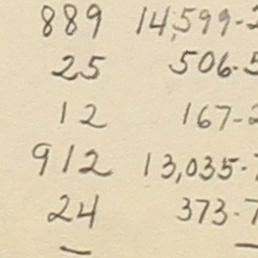 889 14,599-2
25 506-5
12 167-2
912 13,035-7
24 373-7